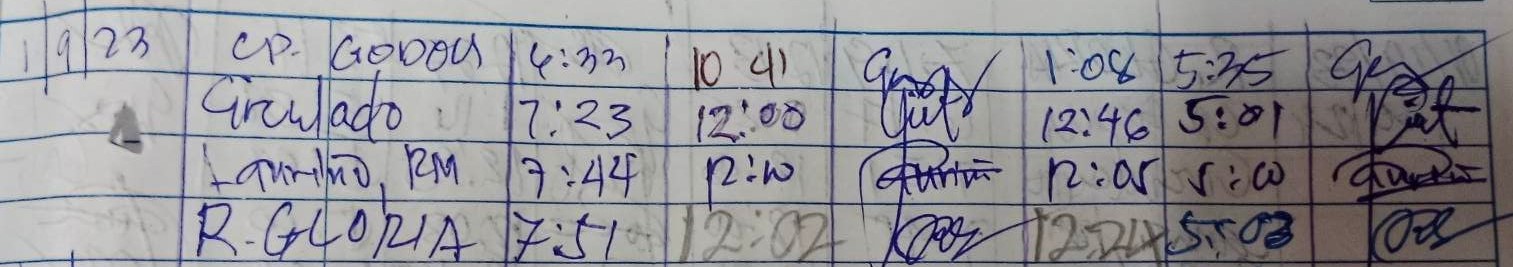 1 9 23 CP. GODOY 6:33 10 41 1:08 5:35
Circulado 7:23 12:00 12:46 5:01
Laurino, RM 7:44 12:00 12:05 5:00
R. GLORIA 7:51 12:02 12:24 5:03